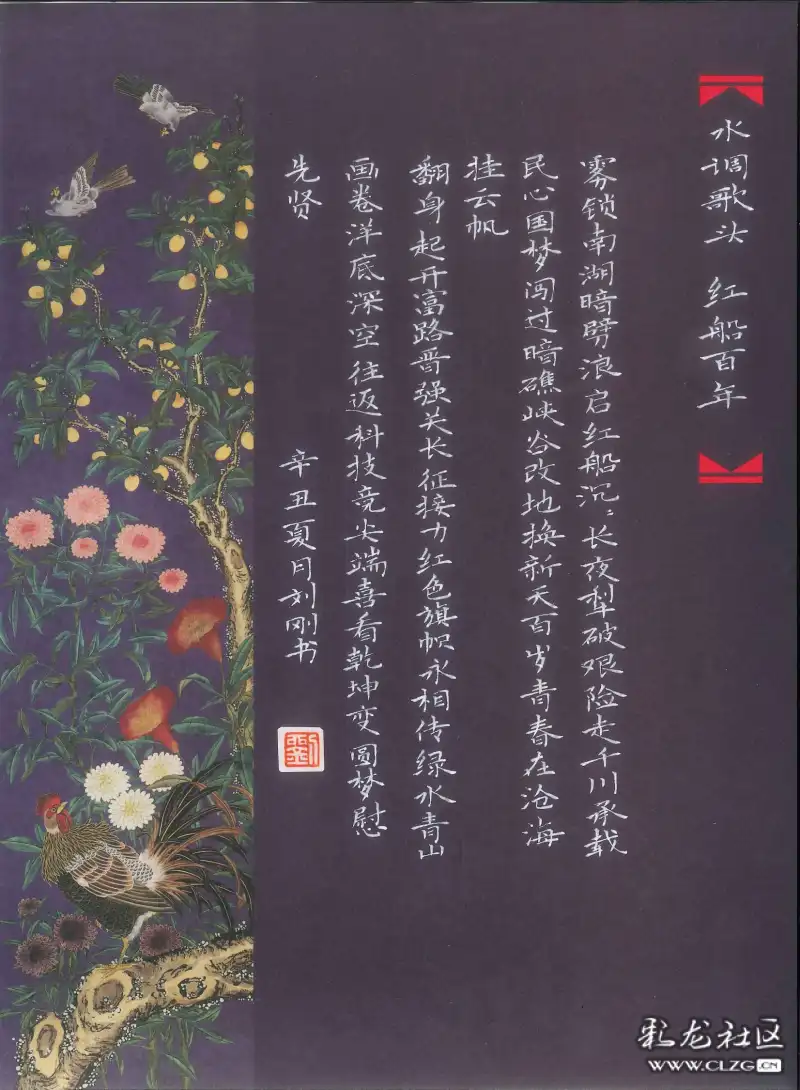 水调歌头 红船百年
雾锁南湖暗劈浪启红船沉:长夜犁破艰险走千川承载
民心国梦闯过暗礁峡谷改地换新天百岁青春在沧海
挂云帆
翻身起开富路晋强关长征接力红色旗帜永相传绿水青山
画卷洋底深空往返科技竞尖端喜看乾坤变圆梦慰
先贤
辛丑夏月刘刚书
劉
彩龙社区
WWW.CLZG.CN